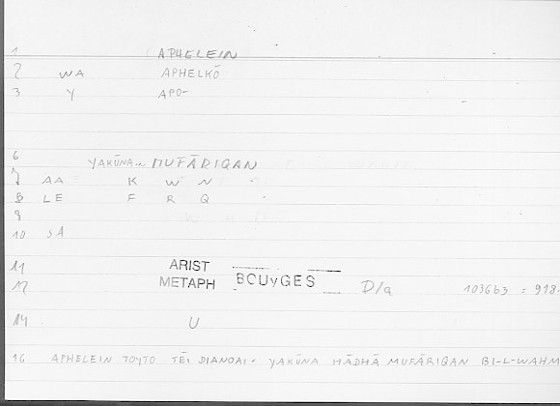 1 APHELEIN
2 WA APHELKŌ
3 Y APO-
6 YAKŪNA... MUFĀRIQAN
7 AA K W N
8 LE F R Q
9
10 SA
11 ARIST
12 METAPH BOUyGES D/a 1036b3 = 918.
14 U
16 APHELEIN TOYTO TĒI DIANOAI. YAKŪNA HĀDHĀ MUFĀRIQAN BI-L-WAHM